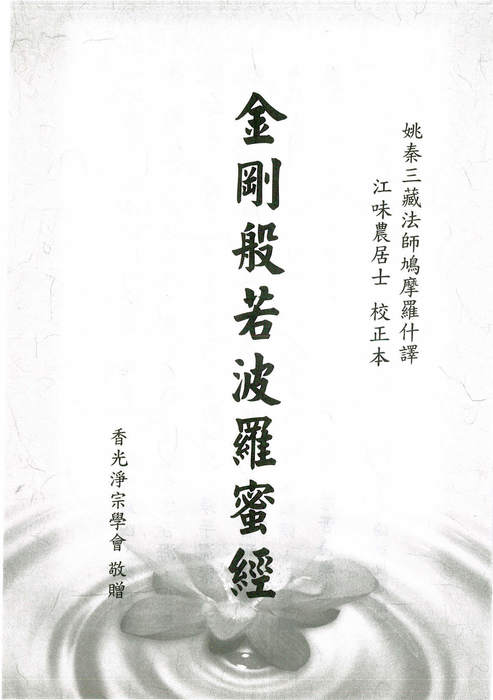 姚秦三藏法師鳩摩羅什譯
江味農居士 校正本
金剛般若波羅蜜經
香光淨宗學會 敬贈